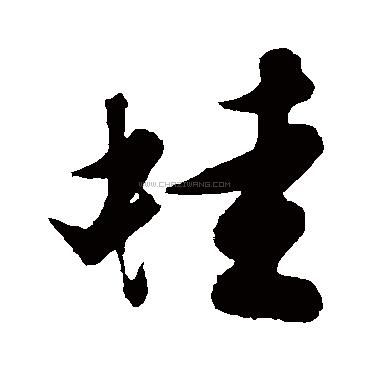 挂
WWW.CHAZIWANG.COM